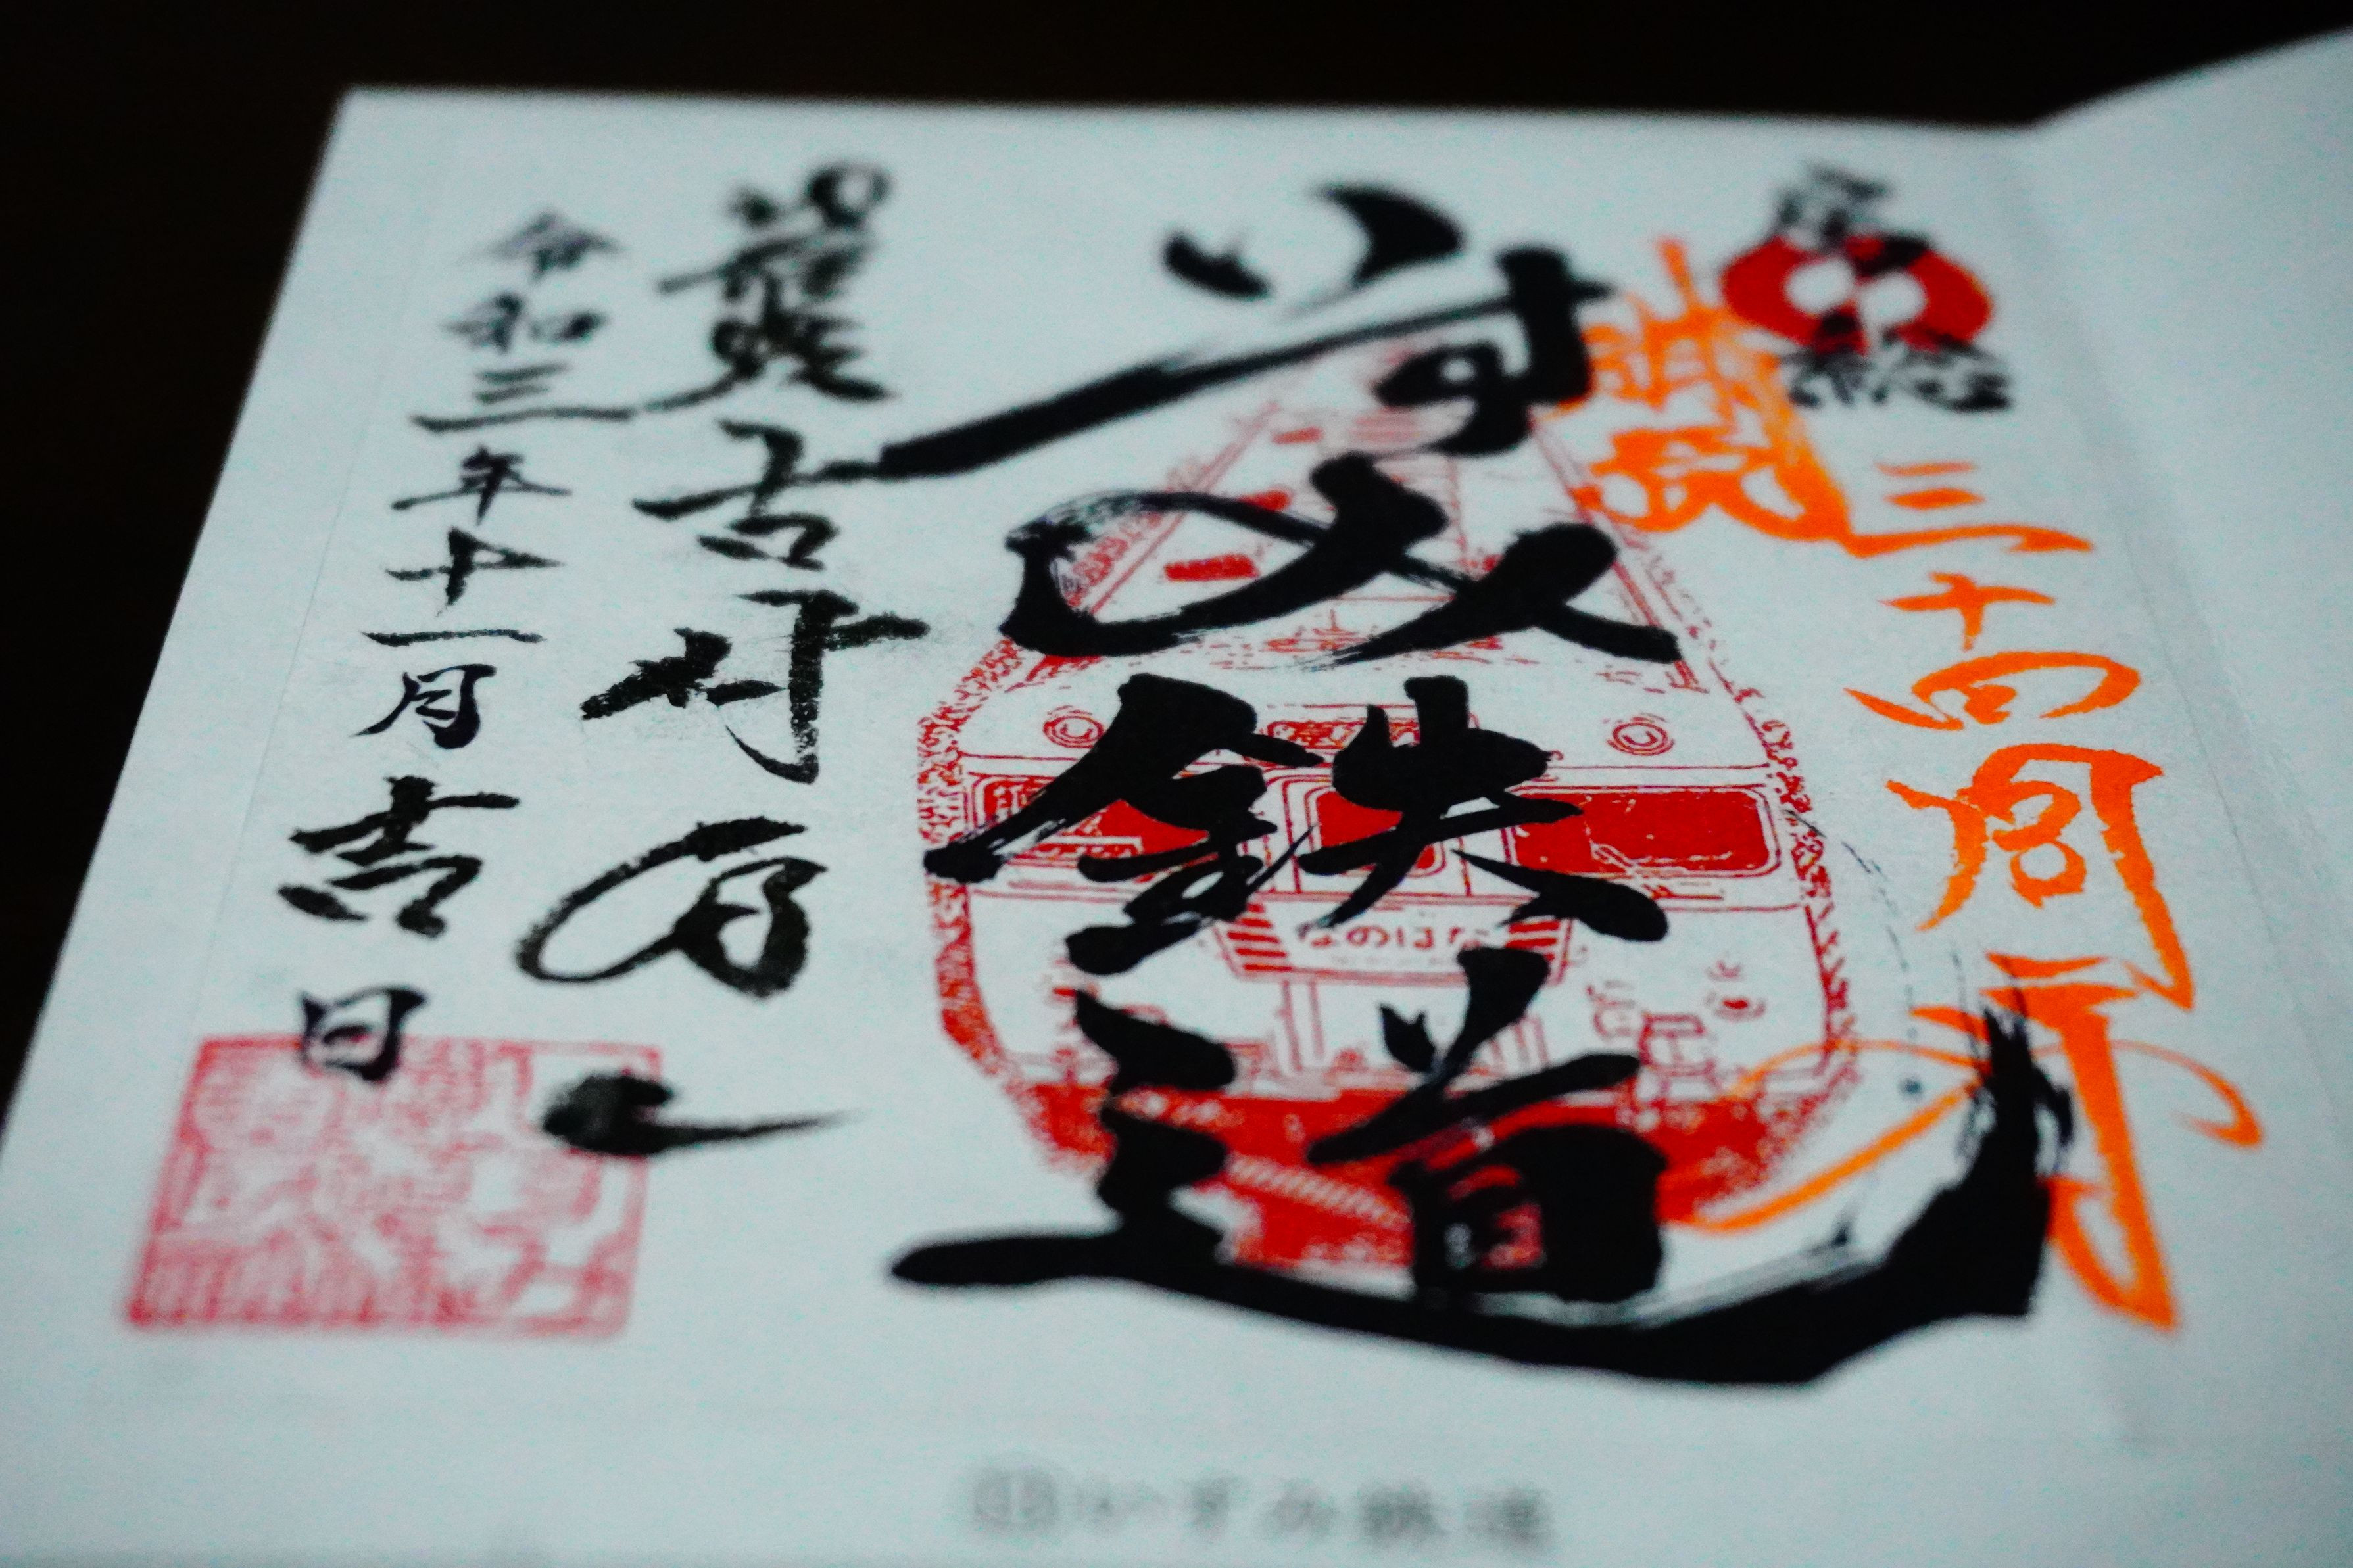 房総
三十四周年
いすみ鉄道
なのはな
古竹孝一
令和三年十一月吉日
いすみ鉄道